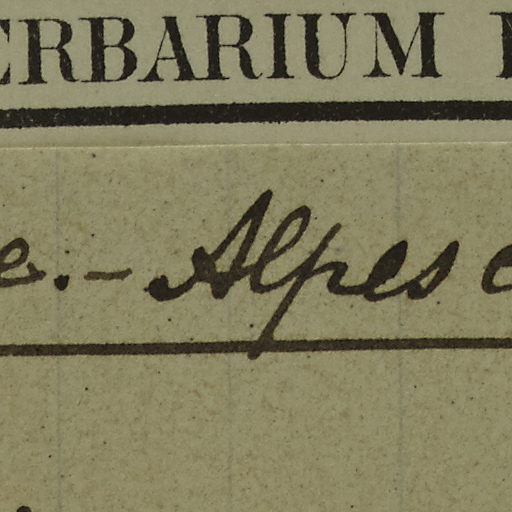 ERBARIUM
e. - Alpes